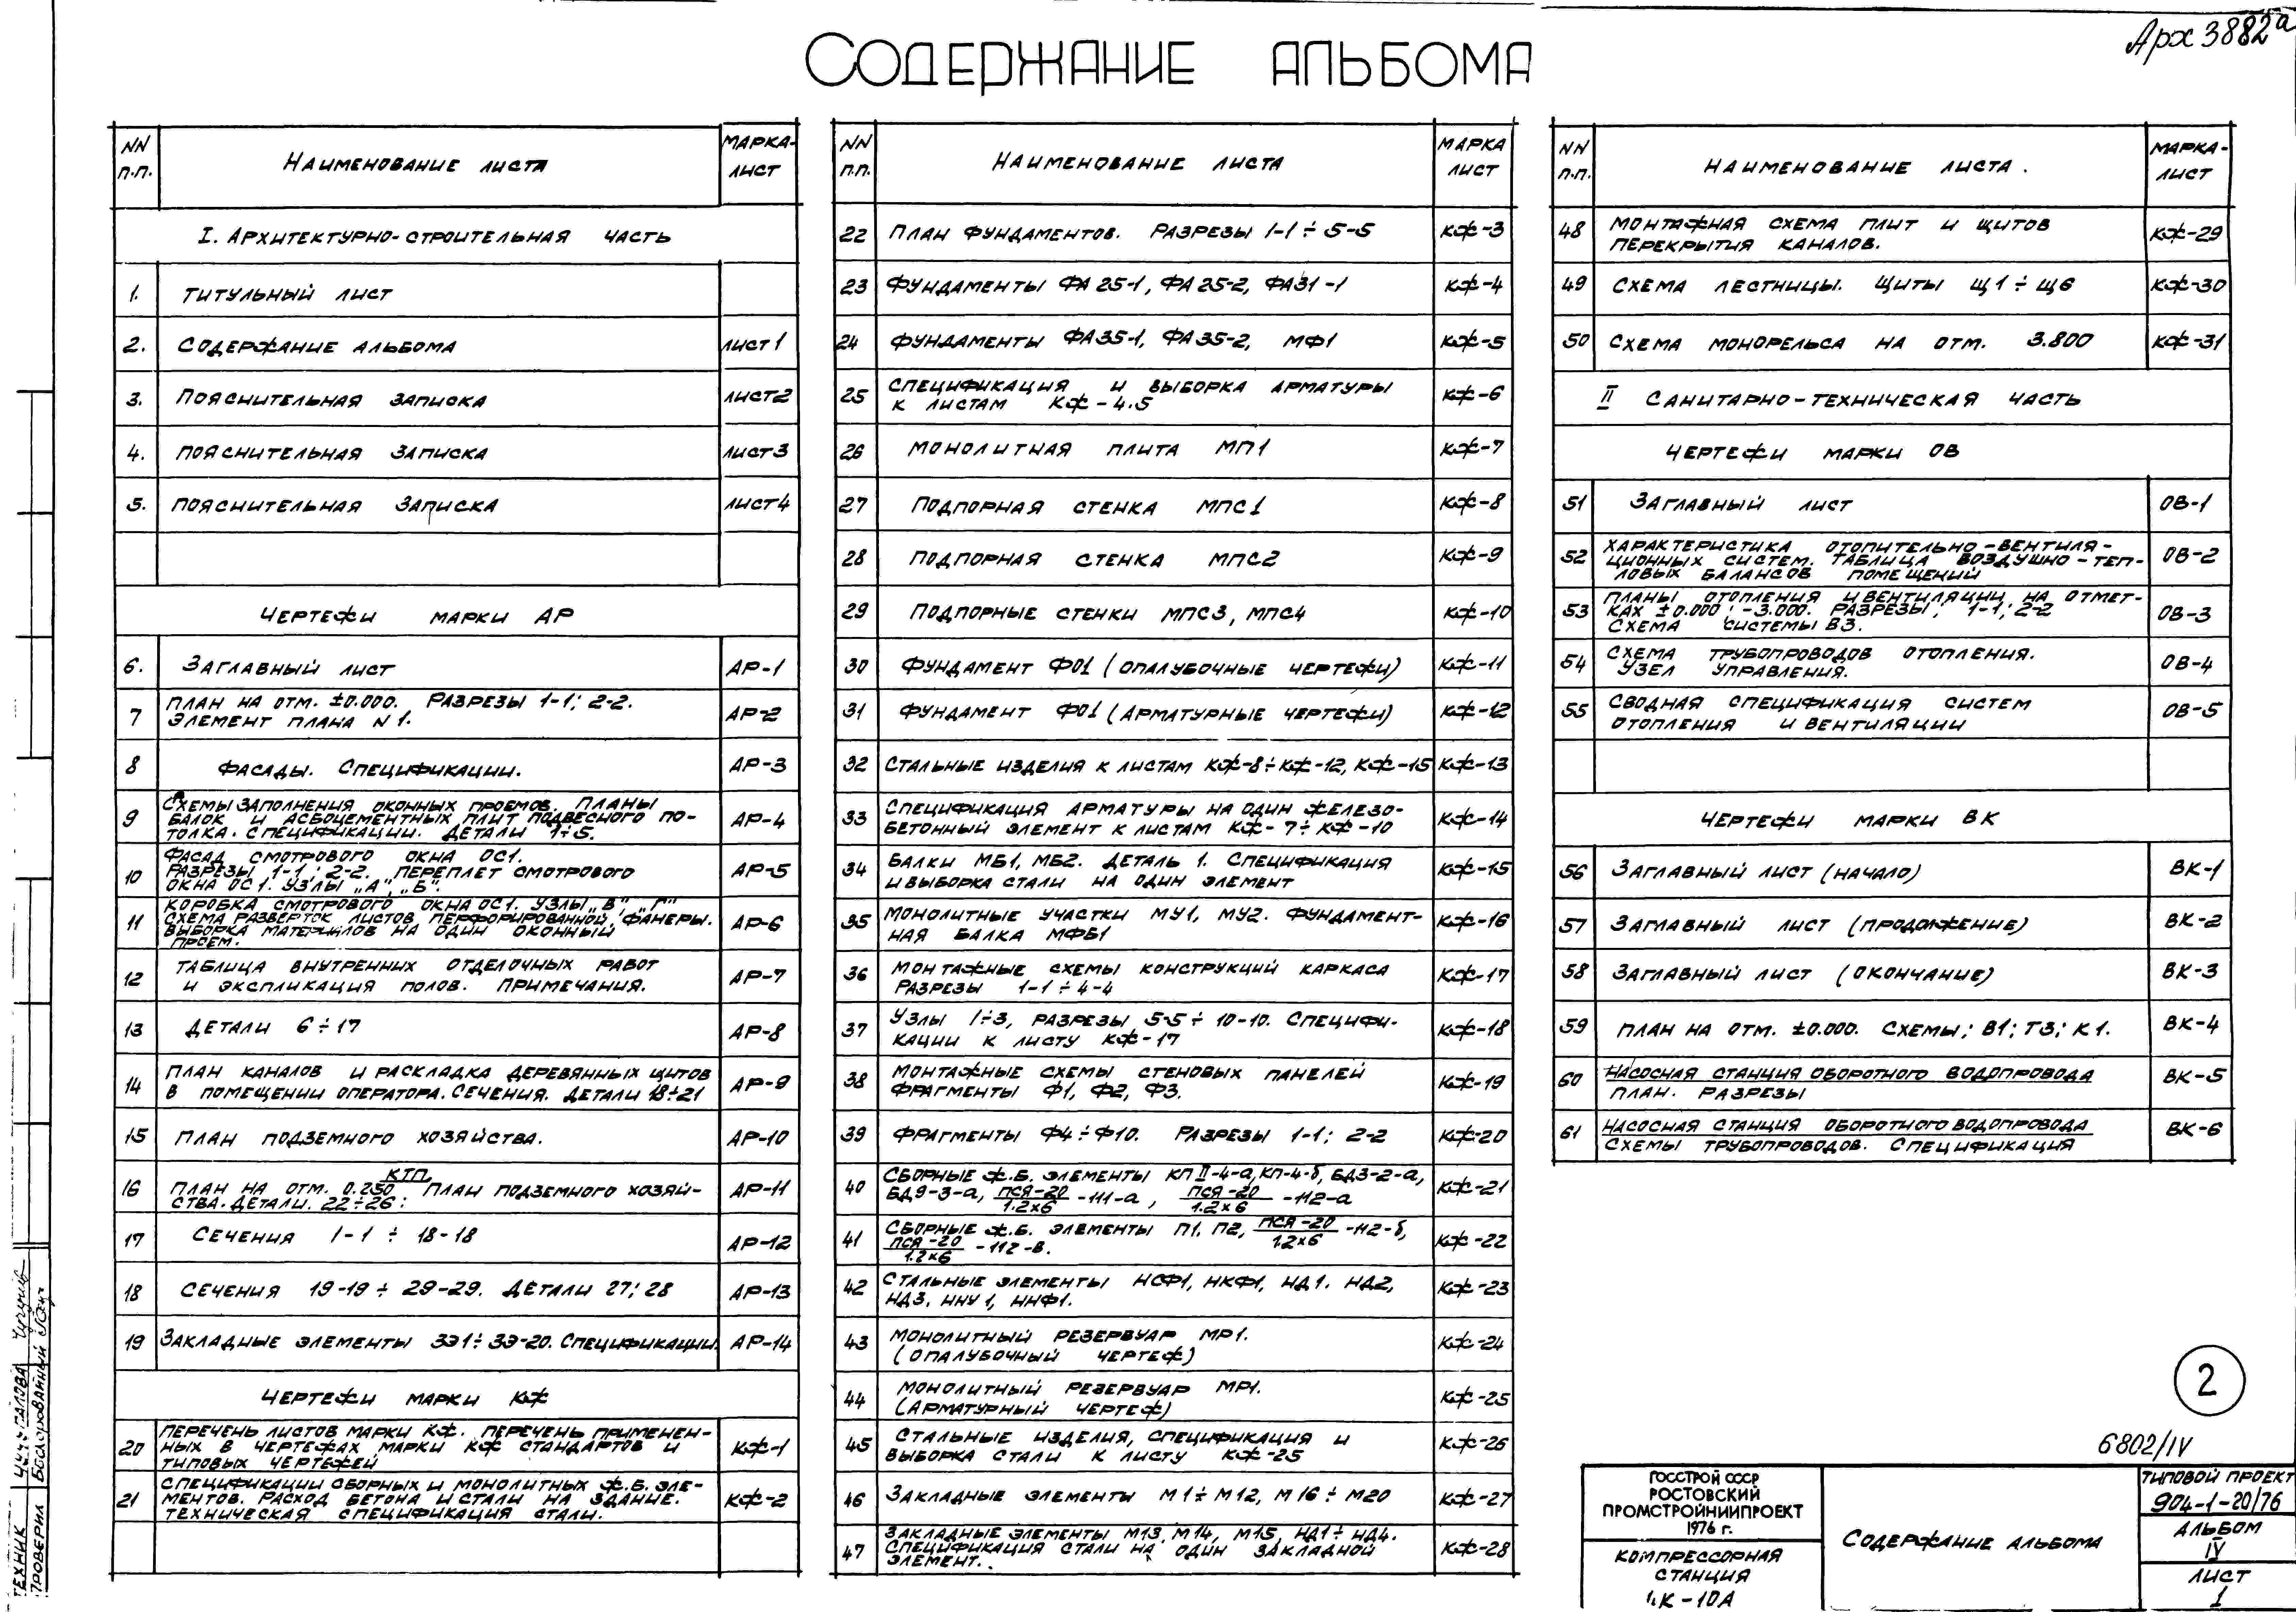 Арх 3882а
СОДЕРЖАНИЕ АЛЬБОМА
NN п.п. НАИМЕНОВАНИЕ ЛИСТА МАРКА-ЛИСТ
I. АРХИТЕКТУРНО-СТРОИТЕЛЬНАЯ ЧАСТЬ
1. ТИТУЛЬНЫЙ ЛИСТ
2. СОДЕРЖАНИЕ АЛЬБОМА ЛИСТ 1
3. ПОЯСНИТЕЛЬНАЯ ЗАПИСКА ЛИСТ 2
4. ПОЯСНИТЕЛЬНАЯ ЗАПИСКА ЛИСТ 3
5. ПОЯСНИТЕЛЬНАЯ ЗАПИСКА ЛИСТ 4
ЧЕРТЕЖИ МАРКИ АР
6. ЗАГЛАВНЫЙ ЛИСТ АР-1
7 ПЛАН НА ОТМ. ±0.000. РАЗРЕЗЫ 1-1; 2-2.
ЭЛЕМЕНТ ПЛАНА N 1. АР-2
8 ФАСАДЫ. СПЕЦИФИКАЦИИ. АР-3
9 СХЕМЫ ЗАПОЛНЕНИЯ ОКОННЫХ ПРОЕМОВ. ПЛАНЫ
БАЛОК И АСБОЦЕМЕНТНЫХ ПЛИТ ПОДВЕСНОГО ПО-
ТОЛКА. СПЕЦИФИКАЦИИ. ДЕТАЛИ 1÷5. АР-4
10 ФАСАД СМОТРОВОГО ОКНА ОС1.
РАЗРЕЗЫ 1-1; 2-2. ПЕРЕПЛЕТ СМОТРОВОГО
ОКНА ОС1. УЗЛЫ „А", „Б". АР-5
11 КОРОБКА СМОТРОВОГО ОКНА ОС1. УЗЛЫ „В" „Г"
СХЕМА РАЗВЕРТОК ЛИСТОВ ПЕРФОРИРОВАННОЙ ФАНЕРЫ.
ВЫБОРКА МАТЕРИАЛОВ НА ОДИН ОКОННЫЙ
ПРОЕМ. АР-6
12 ТАБЛИЦА ВНУТРЕННИХ ОТДЕЛОЧНЫХ РАБОТ
И ЭКСПЛИКАЦИЯ ПОЛОВ. ПРИМЕЧАНИЯ. АР-7
13 ДЕТАЛИ 6÷17 АР-8
14 ПЛАН КАНАЛОВ И РАСКЛАДКА ДЕРЕВЯННЫХ ЩИТОВ
В ПОМЕЩЕНИИ ОПЕРАТОРА. СЕЧЕНИЯ. ДЕТАЛИ 18÷21 АР-9
15 ПЛАН ПОДЗЕМНОГО ХОЗЯЙСТВА. АР-10
16 КТП.
ПЛАН НА ОТМ. 0.250 ПЛАН ПОДЗЕМНОГО ХОЗЯЙ-
СТВА. ДЕТАЛИ. 22÷26. АР-11
17 СЕЧЕНИЯ 1-1 ÷ 18-18 АР-12
18 СЕЧЕНИЯ 19-19 ÷ 29-29. ДЕТАЛИ 27; 28 АР-13
19 ЗАКЛАДНЫЕ ЭЛЕМЕНТЫ ЗЭ1÷ЗЭ-20. СПЕЦИФИКАЦИИ. АР-14
ЧЕРТЕЖИ МАРКИ КЖ
20 ПЕРЕЧЕНЬ ЛИСТОВ МАРКИ КЖ. ПЕРЕЧЕНЬ ПРИМЕНЕН-
НЫХ В ЧЕРТЕЖАХ МАРКИ КЖ СТАНДАРТОВ И
ТИПОВЫХ ЧЕРТЕЖЕЙ КЖ-1
21 СПЕЦИФИКАЦИИ СБОРНЫХ И МОНОЛИТНЫХ Ж.Б. ЭЛЕ-
МЕНТОВ. РАСХОД БЕТОНА И СТАЛИ НА ЗДАНИЕ.
ТЕХНИЧЕСКАЯ СПЕЦИФИКАЦИЯ СТАЛИ. КЖ-2
NN п.п. НАИМЕНОВАНИЕ ЛИСТА МАРКА ЛИСТ
22 ПЛАН ФУНДАМЕНТОВ. РАЗРЕЗЫ 1-1 ÷ 5-5 КЖ-3
23 ФУНДАМЕНТЫ ФА 25-1, ФА 25-2, ФА31-1 КЖ-4
24 ФУНДАМЕНТЫ ФА35-1, ФА 35-2, МФ1 КЖ-5
25 СПЕЦИФИКАЦИЯ И ВЫБОРКА АРМАТУРЫ
К ЛИСТАМ КЖ-4.5 КЖ-6
26 МОНОЛИТНАЯ ПЛИТА МП1 КЖ-7
27 ПОДПОРНАЯ СТЕНКА МПС1 КЖ-8
28 ПОДПОРНАЯ СТЕНКА МПС2 КЖ-9
29 ПОДПОРНЫЕ СТЕНКИ МПС3, МПС4 КЖ-10
30 ФУНДАМЕНТ ФО1 (ОПАЛУБОЧНЫЕ ЧЕРТЕЖИ) КЖ-11
31 ФУНДАМЕНТ ФО1 (АРМАТУРНЫЕ ЧЕРТЕЖИ) КЖ-12
32 СТАЛЬНЫЕ ИЗДЕЛИЯ К ЛИСТАМ КЖ-8÷КЖ-12, КЖ-15 КЖ-13
33 СПЕЦИФИКАЦИЯ АРМАТУРЫ НА ОДИН ЖЕЛЕЗО-
БЕТОННЫЙ ЭЛЕМЕНТ К ЛИСТАМ КЖ-7÷КЖ-10 КЖ-14
34 БАЛКИ МБ1, МБ2. ДЕТАЛЬ 1. СПЕЦИФИКАЦИЯ
И ВЫБОРКА СТАЛИ НА ОДИН ЭЛЕМЕНТ КЖ-15
35 МОНОЛИТНЫЕ УЧАСТКИ МУ1, МУ2. ФУНДАМЕНТ-
НАЯ БАЛКА МФБ1 КЖ-16
36 МОНТАЖНЫЕ СХЕМЫ КОНСТРУКЦИЙ КАРКАСА
РАЗРЕЗЫ 1-1 ÷ 4-4 КЖ-17
37 УЗЛЫ 1÷3, РАЗРЕЗЫ 5-5÷10-10. СПЕЦИФИ-
КАЦИИ К ЛИСТУ КЖ-17 КЖ-18
38 МОНТАЖНЫЕ СХЕМЫ СТЕНОВЫХ ПАНЕЛЕЙ
ФРАГМЕНТЫ Ф1, Ф2, Ф3. КЖ-19
39 ФРАГМЕНТЫ Ф4÷Ф10. РАЗРЕЗЫ 1-1; 2-2 КЖ-20
40 СБОРНЫЕ Ж.Б. ЭЛЕМЕНТЫ КПII-4-а, КП-4-б, БД3-2-а,
БД9-3-а, ПСЯ-20/1.2х6 -111-а, ПСЯ-20/1.2х6 -112-а КЖ-21
41 СБОРНЫЕ Ж.Б. ЭЛЕМЕНТЫ П1, П2, ПСЯ-20/1.2х6 -112-б,
ПСЯ-20/1.2х6 -112-в. КЖ-22
42 СТАЛЬНЫЕ ЭЛЕМЕНТЫ НСФ1, НКФ1, НД1. НД2,
НД3, ННУ1, ННФ1. КЖ-23
43 МОНОЛИТНЫЙ РЕЗЕРВУАР МР1.
(ОПАЛУБОЧНЫЙ ЧЕРТЕЖ) КЖ-24
44 МОНОЛИТНЫЙ РЕЗЕРВУАР МР1.
(АРМАТУРНЫЙ ЧЕРТЕЖ) КЖ-25
45 СТАЛЬНЫЕ ИЗДЕЛИЯ, СПЕЦИФИКАЦИЯ И
ВЫБОРКА СТАЛИ К ЛИСТУ КЖ-25 КЖ-26
46 ЗАКЛАДНЫЕ ЭЛЕМЕНТЫ М1÷М12, М16÷М20 КЖ-27
47 ЗАКЛАДНЫЕ ЭЛЕМЕНТЫ М13, М14, М15, НД1÷НД4.
СПЕЦИФИКАЦИЯ СТАЛИ НА ОДИН ЗАКЛАДНОЙ
ЭЛЕМЕНТ. КЖ-28
NN п.п. НАИМЕНОВАНИЕ ЛИСТА. МАРКА-ЛИСТ
48 МОНТАЖНАЯ СХЕМА ПЛИТ И ЩИТОВ
ПЕРЕКРЫТИЯ КАНАЛОВ. КЖ-29
49 СХЕМА ЛЕСТНИЦЫ. ЩИТЫ Щ1÷Щ6 КЖ-30
50 СХЕМА МОНОРЕЛЬСА НА ОТМ. 3.800 КЖ-31
II САНИТАРНО-ТЕХНИЧЕСКАЯ ЧАСТЬ
ЧЕРТЕЖИ МАРКИ ОВ
51 ЗАГЛАВНЫЙ ЛИСТ ОВ-1
52 ХАРАКТЕРИСТИКА ОТОПИТЕЛЬНО-ВЕНТИЛЯ-
ЦИОННЫХ СИСТЕМ. ТАБЛИЦА ВОЗДУШНО-ТЕП-
ЛОВЫХ БАЛАНСОВ ПОМЕЩЕНИЙ ОВ-2
53 ПЛАНЫ ОТОПЛЕНИЯ И ВЕНТИЛЯЦИИ НА ОТМЕТ-
КАХ ±0.000; -3.000. РАЗРЕЗЫ; 1-1; 2-2
СХЕМА СИСТЕМЫ В3. ОВ-3
54 СХЕМА ТРУБОПРОВОДОВ ОТОПЛЕНИЯ.
УЗЕЛ УПРАВЛЕНИЯ. ОВ-4
55 СВОДНАЯ СПЕЦИФИКАЦИЯ СИСТЕМ
ОТОПЛЕНИЯ И ВЕНТИЛЯЦИИ ОВ-5
ЧЕРТЕЖИ МАРКИ ВК
56 ЗАГЛАВНЫЙ ЛИСТ (НАЧАЛО) ВК-1
57 ЗАГЛАВНЫЙ ЛИСТ (ПРОДОЛЖЕНИЕ) ВК-2
58 ЗАГЛАВНЫЙ ЛИСТ (ОКОНЧАНИЕ) ВК-3
59 ПЛАН НА ОТМ. ±0.000. СХЕМЫ; В1; Т3; К1. ВК-4
60 НАСОСНАЯ СТАНЦИЯ ОБОРОТНОГО ВОДОПРОВОДА
ПЛАН. РАЗРЕЗЫ ВК-5
61 НАСОСНАЯ СТАНЦИЯ ОБОРОТНОГО ВОДОПРОВОДА
СХЕМЫ ТРУБОПРОВОДОВ. СПЕЦИФИКАЦИЯ ВК-6
2
6802/IV
ГОССТРОЙ СССР
РОСТОВСКИЙ
ПРОМСТРОЙНИИПРОЕКТ
1976 г.
КОМПРЕССОРНАЯ
СТАНЦИЯ
4К-10А
СОДЕРЖАНИЕ АЛЬБОМА
ТИПОВОЙ ПРОЕКТ
904-1-20/76
АЛЬБОМ
IV
ЛИСТ
1
ТЕХНИК
ПРОВЕРИЛ